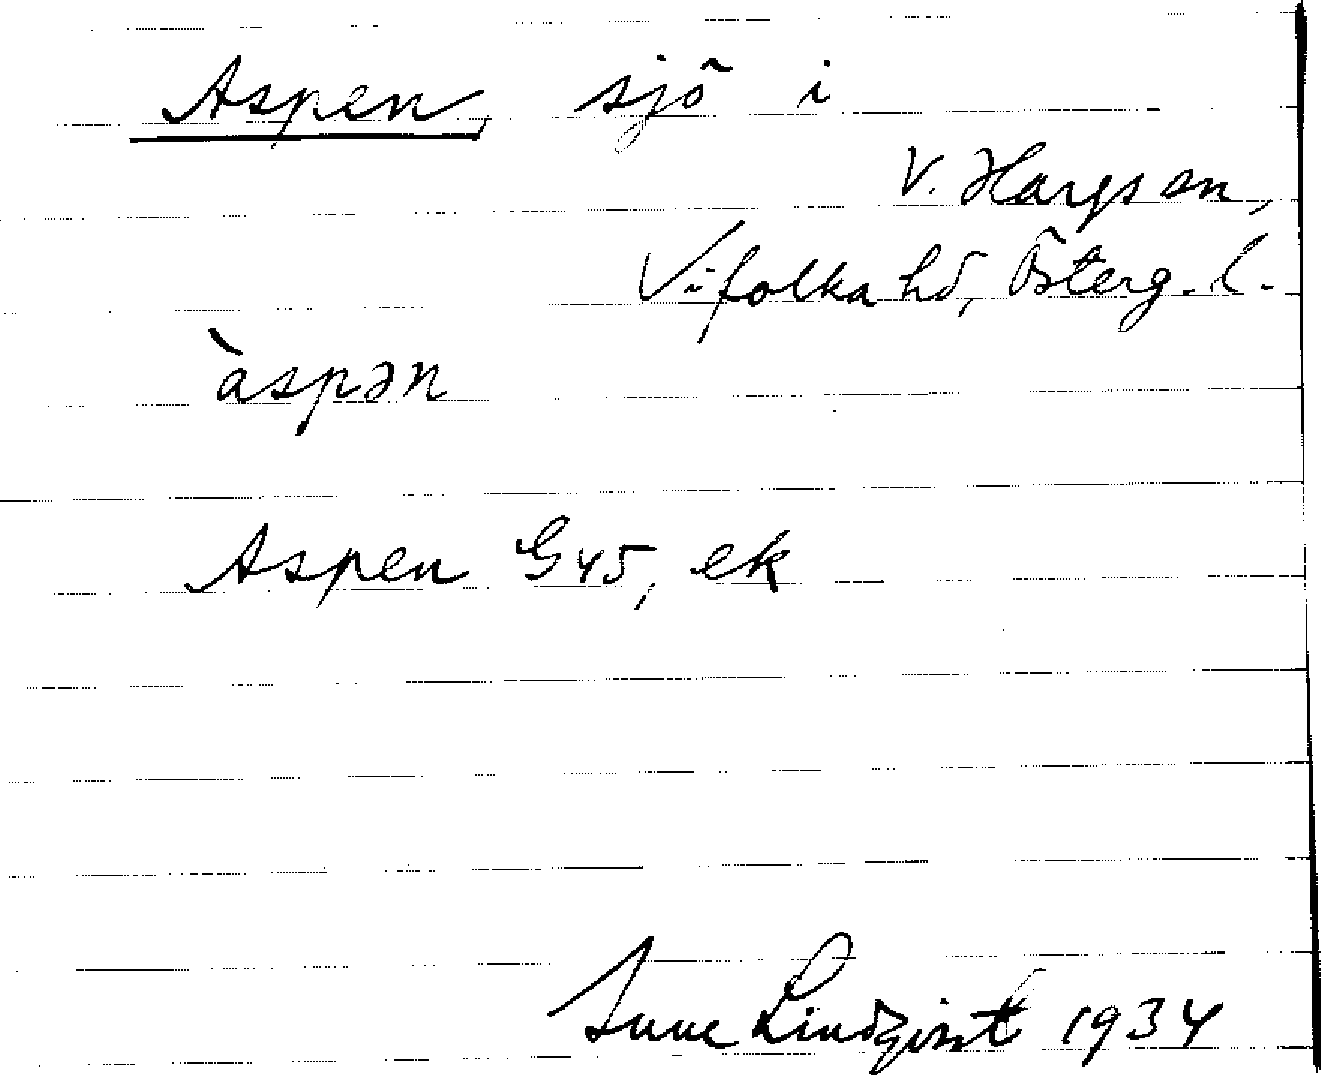 Aspen, sjö i
V. Hargs sn,
Vifolka hd, Österg. l.
àspən
Aspen G45, ek
Sune Lindqvist 1934